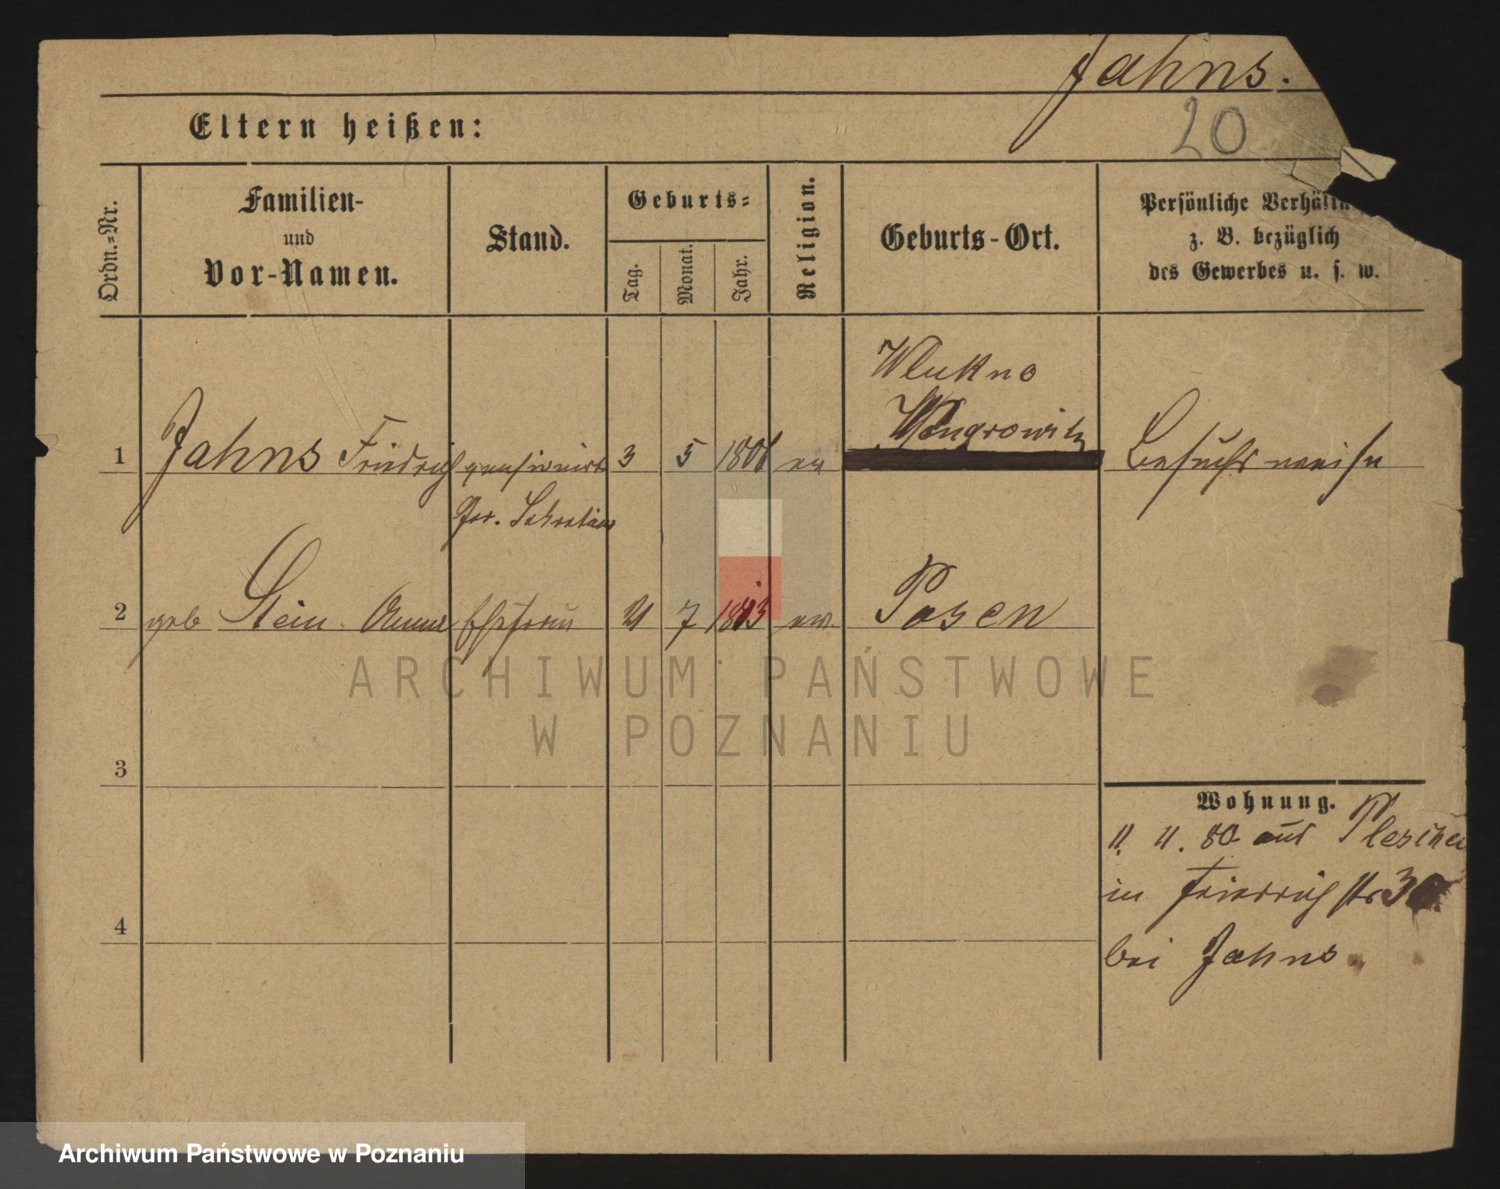 Jahns.
20
Eltern heißen:
Ordn.-Nr.
Familien-
und
Vor-Namen.
Stand.
Geburts-
Tag.
Monat.
Jahr.
Religion.
Geburts-Ort.
Persönliche
z. B. bezüglich
des Gewerbes u. s. w.
Wlukno
Wongrowitz
1 Jahns Friedrich pensionirt 3 5 1801 ev Besuchsweise
Ger. Sekretair
2 geb Stein Anna Ehefrau 7 ev. Posen
ARCHIWUM PAŃSTWOWE
W POZNANIU
3
Wohnung.
11. 11. 80 aus Pleschen
in Friedrichstr 30
4
bei Jahns
Archiwum Państwowe w Poznaniu